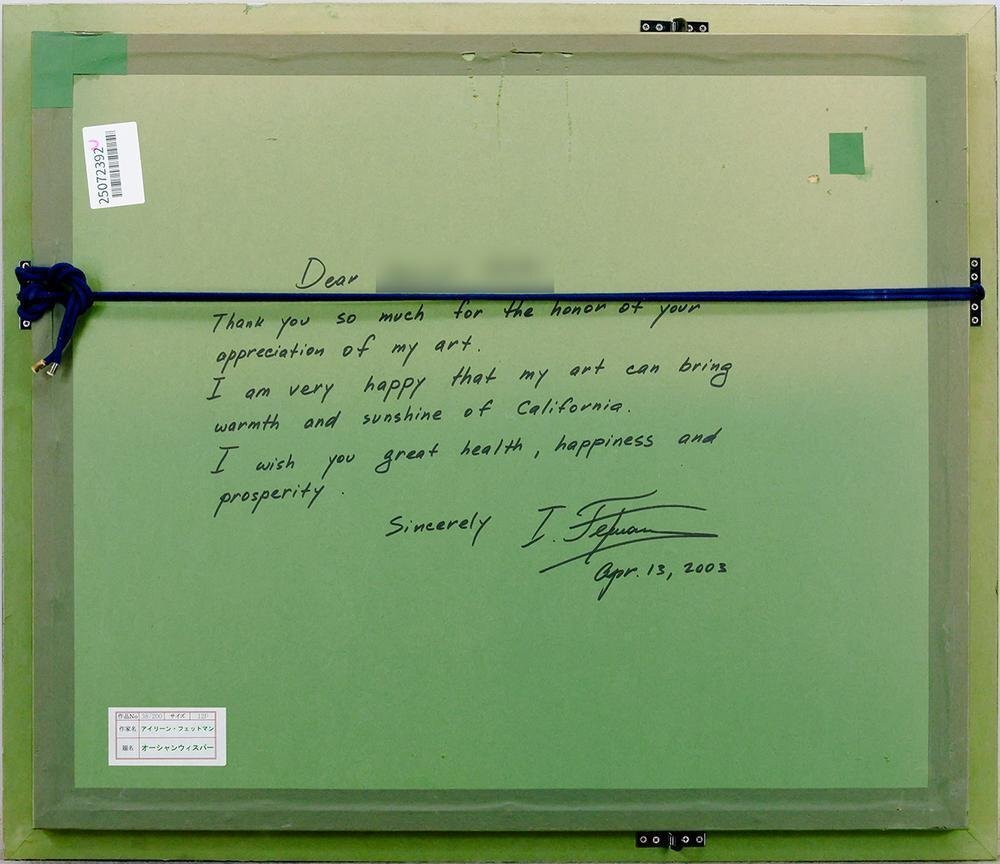 25072392
Dear
Thank you so much for the honor of your
appreciation of my art.
I am very happy that my art can bring
warmth and sunshine of California.
I wish you great health, happiness and
prosperity.
Sincerely I. Fetman
Apr. 13, 2003
作品No 38/200 サイズ 12P
作家名 アイリーン・フェットマン
題名 オーシャンウィスパー